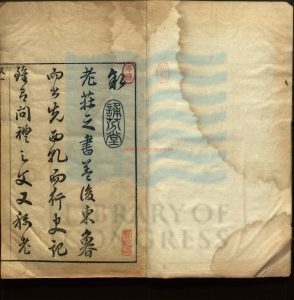 敘
老莊之書蓋後東魯
而出先西乳而行史記
雖有問禮之文又稱老
誦芬堂
LIBRARY OF
CONGRESS